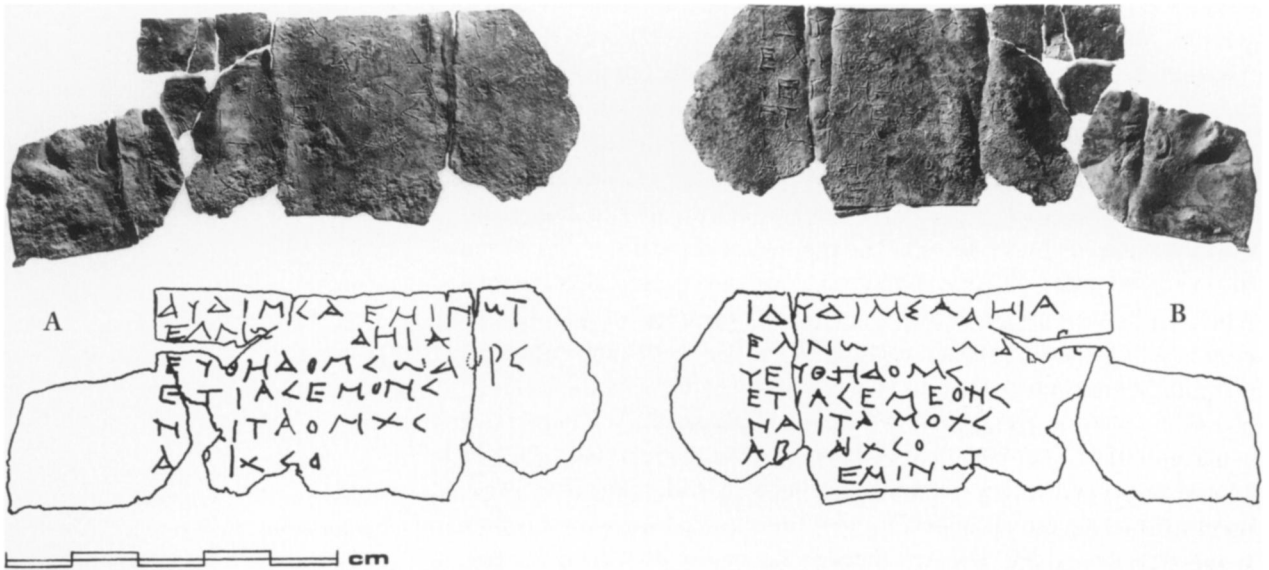 A
ΔΥΔΙΜϹΔ ΕΜΙΝωΤ
ΕΛΝω ΔΗΙΑ
ΕΥΘΗΔΟΜϹωΔ ΡϹ
ΕΤΙΑϹΕΜΟΝϹ
Ν ΙΤΑΟΜΧϹ
Α ΙΧϹΟ
B
ΙΔΥΔΙΜΕΔΑΗΙΑ
ΕΛΝω
ΥΕΥΘΗΔΟΜϹ
ΕΤΙΑϹΕΜΕΟΝϹ
ΝΑΙΤΑΜΟΧϹ
ΑΒ ΑΙΧϹΟ
ΕΜΙΝωΤ
cm